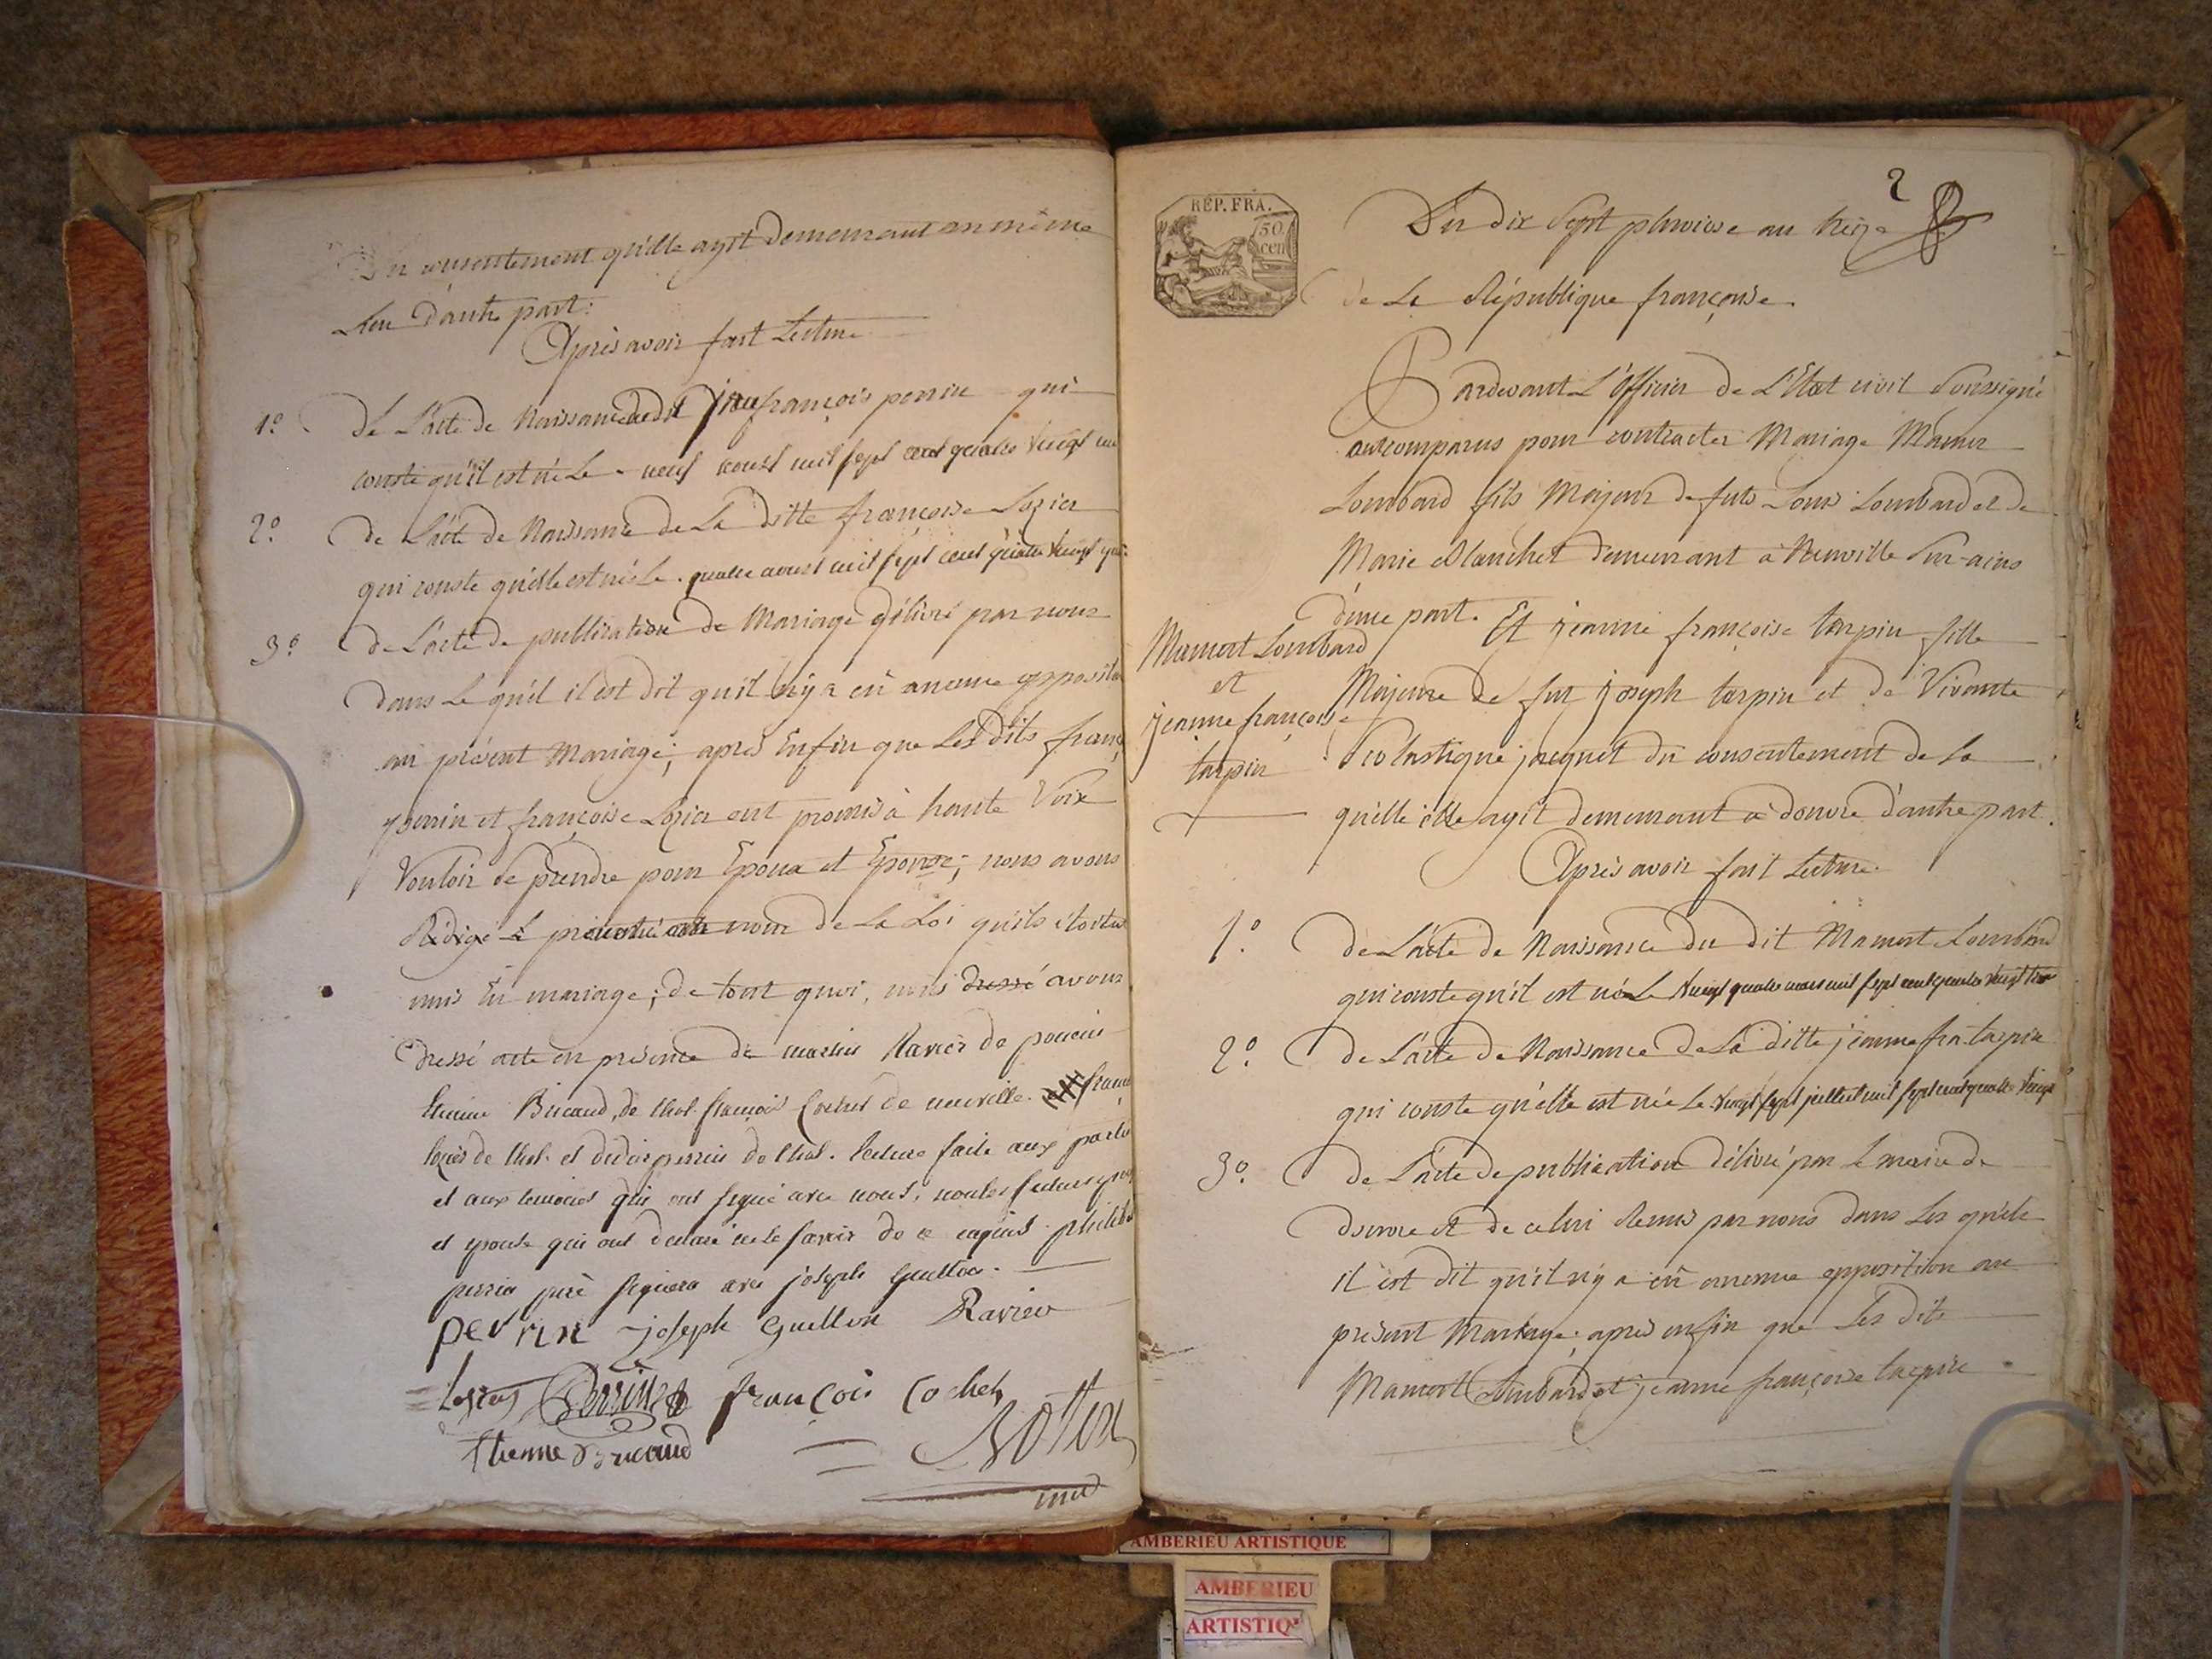 du consentement qu'ille agit demeurant au même
Lieu d'autre part.
Après avoir fait Lecture
1.° De L'acte de Naissance dudit jean françois perrin qui
conste qu'il est né Le neuf aoust mil sept cent quatre vingt un
2.° de L'acte de Naissance de La ditte françoise Lozier
qui conste qu'elle est née Le quatre aoust mil sept cent quatre vingt
3.° de L'acte de publication de Mariage délivré par nous
dans Le quel il est dit qu'il n'y a eû aucune opposition
au présent Mariage; après Enfin que Les dits franç
perrin et françoise Lozier ont promis à haute Voix
Vouloir se prendre pour Epoux et Epouse; nous avons
Rédigé Le au nom de La Loi qu'ils étoites
unis En mariage; de tout quoi, nous dressé avons
Dressé acte en présence de martin Ravier de poncin
Etienne Bricaud, de thol. françois Cochet de neuville. franç
lozier de thol. et didier perrin de thol. lecture faite aux partie
et aux temoins qui ont signé avec nous,
et epouse qui ont déclaré ne le savoir de ce enquis. philib
perrin père signera avec joseph Guillon.
perrin joseph Guillon Ravier
Lozier Perrin françois Cochet
Etienne Bricaud
2
RÉP. FRA.
50
cen
Du dix Sept pluviose an treize
de La République françoise.
Pardevant L'Officier de L'Etat civil Soussigné
ont comparus pour contracter Mariage Mamer
Lombard fils Majeur de futs Louis Lombard et de
Marie Blanchet demeurant à Neuville Sur-ains
d'une part. Et jeanne françoise tarpin fille
Majeure de fut joseph tarpin et de Vivante
Scolastique jacquet du consentement de La
quélle élle agit demeurant à douvre d'autre part.
Mamert Lombard
et
jeanne françoise
tarpin
Après avoir fait Lecture.
1.° de L'acte de Naissance du dit Mamert Lombard
qui conste qu'il est né Le vingt quatre mars mil sept cent quatre vingt trois
2.° de L'acte de Naissance de La ditte jeanne fra. tarpin
qui conste qu'élle est née Le vingt sept juillet mil sept cent quatre vingt
3.° de L'acte de publication délivré par Le maire de
douvre et de celui Remis par nous dans Les quéls
il est dit qu'il n'y a eû aucune opposition au
présent Mariage; après enfin que Les dits
Mamert Lombard et jeanne françoise tarpin
AMBERIEU ARTISTIQUE
AMBERIEU
ARTISTIQ